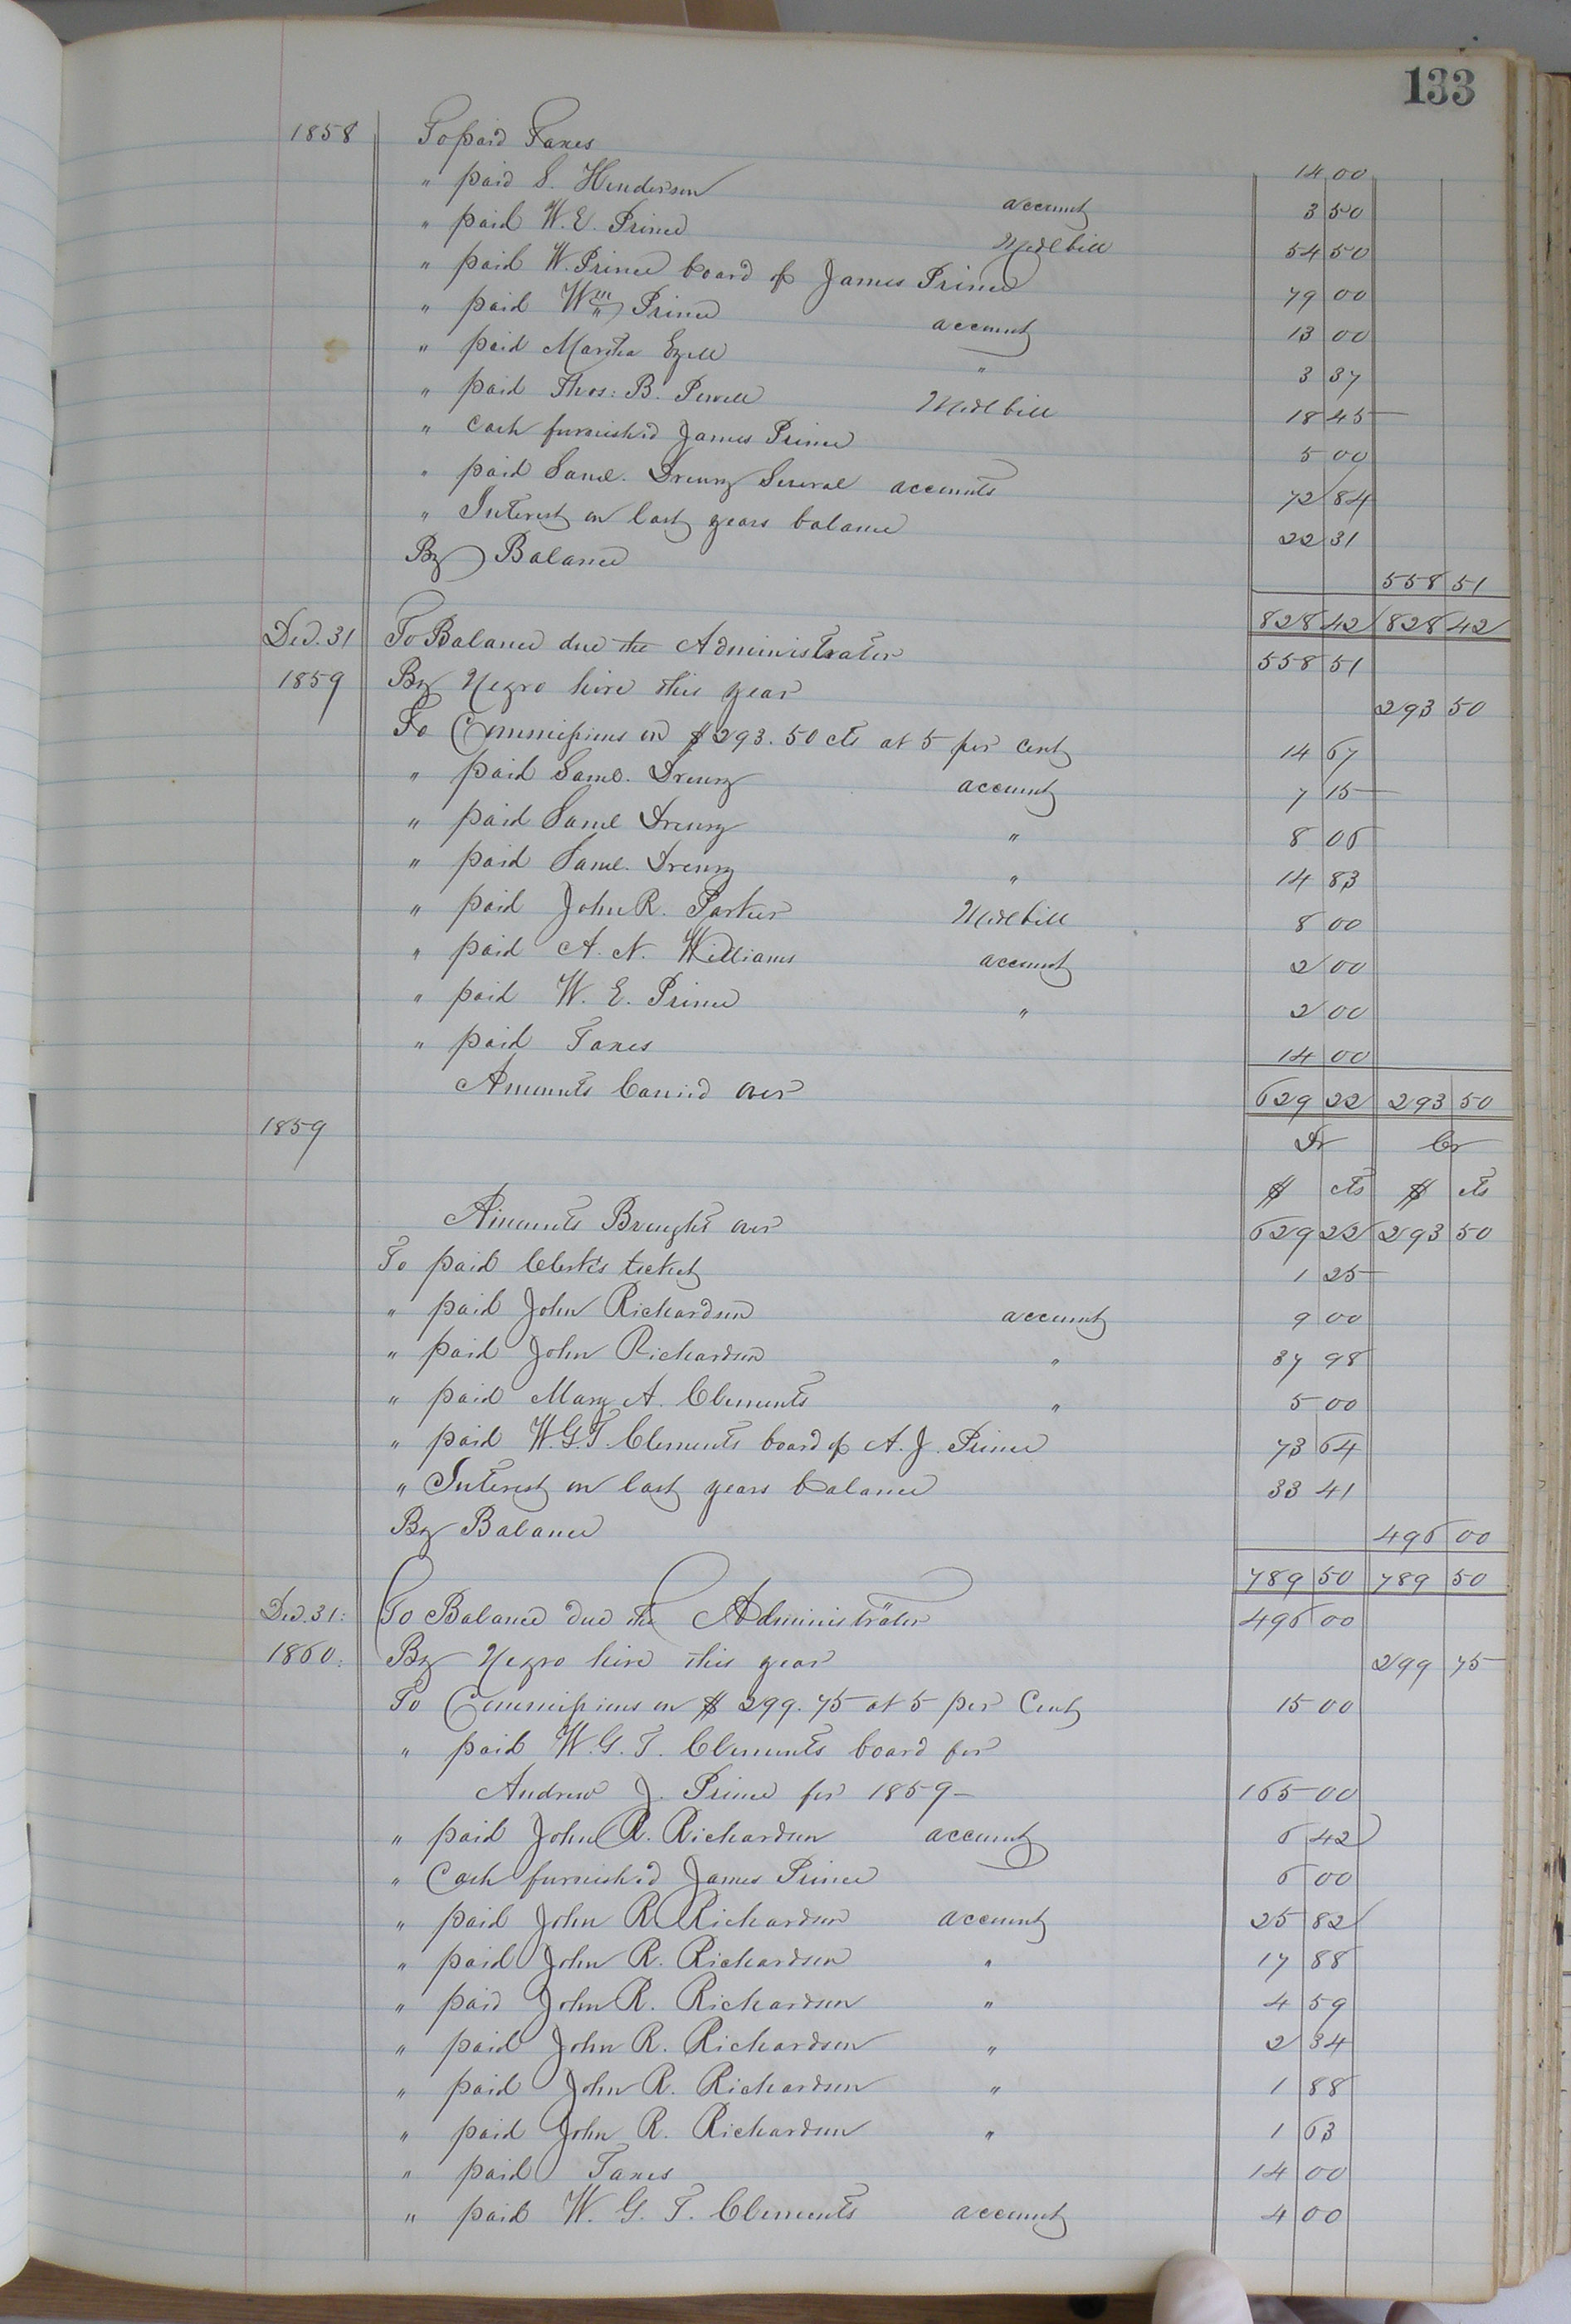 133
1858 To paid Taxes 14 00
" paid S. Henderson account 3 50
" paid W. E. Prince Medl bill 54 50
" paid W. Prince board of James Prince 79 00
" paid Wm Prince account 13 00
" paid Martha Ezell " 3 37
" paid Thos: B. Pewell Medl bill 18 45
" Cash furnish'd James Prince 5 00
" paid Saml. Drewry Several accounts 72 84
" Interest on last years balance 22 31
By Balance 558 51
828 42 828 42
Dec. 31 To Balance due the Administrator 558 51
1859 By Negro hire this year 293 50
To Commissions on $293.50 cts at 5 per cent 14 67
" paid Saml. Drewry account 7 15
" paid Saml Drewry " 8 06
" paid Saml. Drewry " 14 83
" paid John R. Parker Medl bill 8 00
" paid A. N. Williams account 2 00
" paid W. E. Prince " 2 00
" paid Taxes 14 00
Amounts Carried over 629 22 293 50
1859 Dr Cr
$ cts $ cts
Amounts Brought over 629 22 293 50
To paid Clerk's ticket 1 25
" paid John Richardson account 9 00
" paid John Richardson " 37 98
" paid Mary A. Clements " 5 00
" paid W. G. T. Clements board of A. J. Prince 73 64
" Interest on last years balance 33 41
By Balance 496 00
789 50 789 50
Dec. 31: To Balance due the Administrator 496 00
1860: By Negro hire this year 299 75
To Commissions on $ 299.75 at 5 per Cent 15 00
" paid W. G. T. Clements board for
Andrew J. Prince for 1859 - 165 00
" paid John R. Richardson account 6 42
" Cash furnish'd James Prince 6 00
" paid John R Richardson account 25 82
" paid John R. Richardson " 17 88
" paid John R. Richardson " 4 59
" paid John R. Richardson " 2 34
" paid John R. Richardson " 1 88
" paid John R. Richardson " 1 63
" paid Taxes 14 00
" paid W. G. T. Clements account 4 00